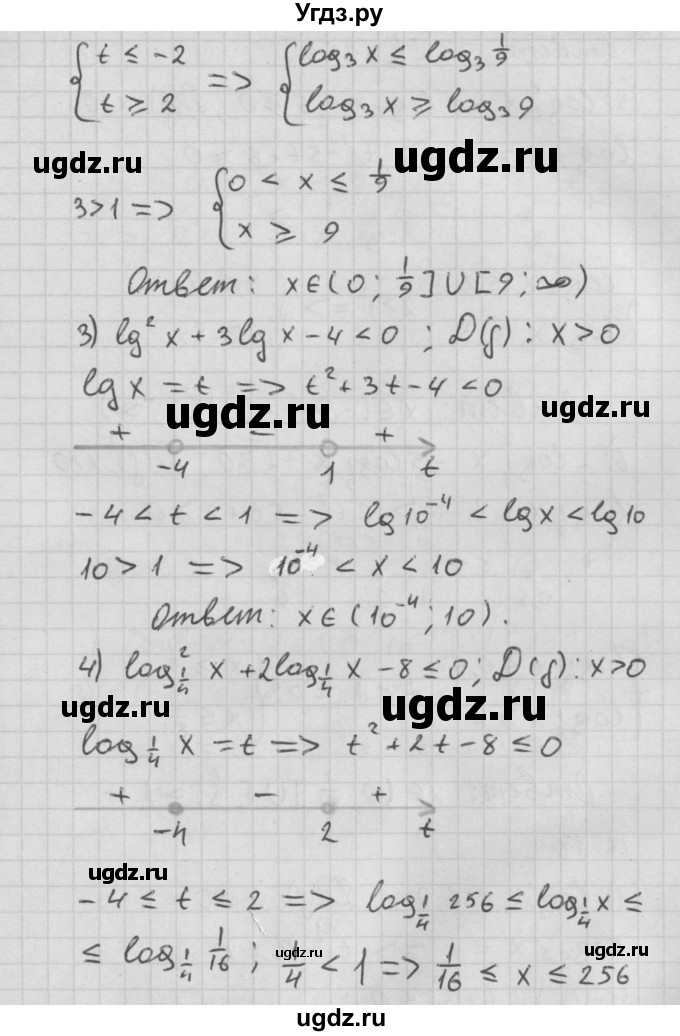 Угдз.ру
{ t ≤ -2 => { log₃ x ≤ log₃ 1/9
{ t ≥ 2 { log₃ x ≥ log₃ 9
ugdz.ru
ugdz.ru
3>1 => { 0 < x ≤ 1/9
{ x ≥ 9
Ответ: x∈(0; 1/9]∪[9; ∞)
3) lg² x + 3lg x - 4 < 0 ; D(y): x>0
lg x = t => t² + 3t - 4 < 0
ugdz.ru
ugdz.ru
+ - +
-4 1 t
-4 < t < 1 => lg 10⁻⁴ < lg x < lg 10
10 > 1 => 10⁻⁴ < x < 10
Ответ: x∈(10⁻⁴; 10).
4) log²_1/4 x + 2log_1/4 x - 8 ≤ 0; D(y): x>0
ugdz.ru
ugdz.ru
log_1/4 x = t => t² + 2t - 8 ≤ 0
+ - +
-4 2 t
ugdz.ru
ugdz.ru
-4 ≤ t ≤ 2 => log_1/4 256 ≤ log_1/4 x ≤
≤ log_1/4 1/16 ; 1/4 < 1 => 1/16 ≤ x ≤ 256
ugdz.ru
ugdz.ru
ugdz.ru
ugdz.ru